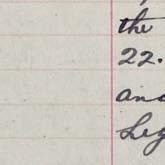 the
22.
and
Leg